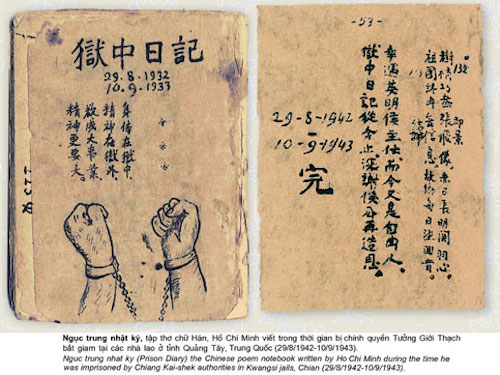 獄中日記
29.8.1932
10.9.1933
身体在獄中
精神在獄外
欲成大事業
精神更要大
-53-
132
即景
樹梢巧畫張飛像。赤日長明關羽心。
祖國終年無信息。故鄉每日望回音。
幸遇英明侯主任而今又是自由人。
獄中日記從今止深謝侯公再造恩。
29-8-1942
10-9-1943
完
Ngục trung nhật ký, tập thơ chữ Hán, Hồ Chí Minh viết trong thời gian bị chính quyền Tưởng Giới Thạch
bắt giam tại các nhà lao ở tỉnh Quảng Tây, Trung Quốc (29/8/1942-10/9/1943).
Ngục trung nhat ky (Prison Diary) the Chinese poem notebook written by Ho Chi Minh during the time he
was imprisoned by Chiang Kai-shek authorities in Kwangsi jails, Chian (29/8/1942-10/9/1943).